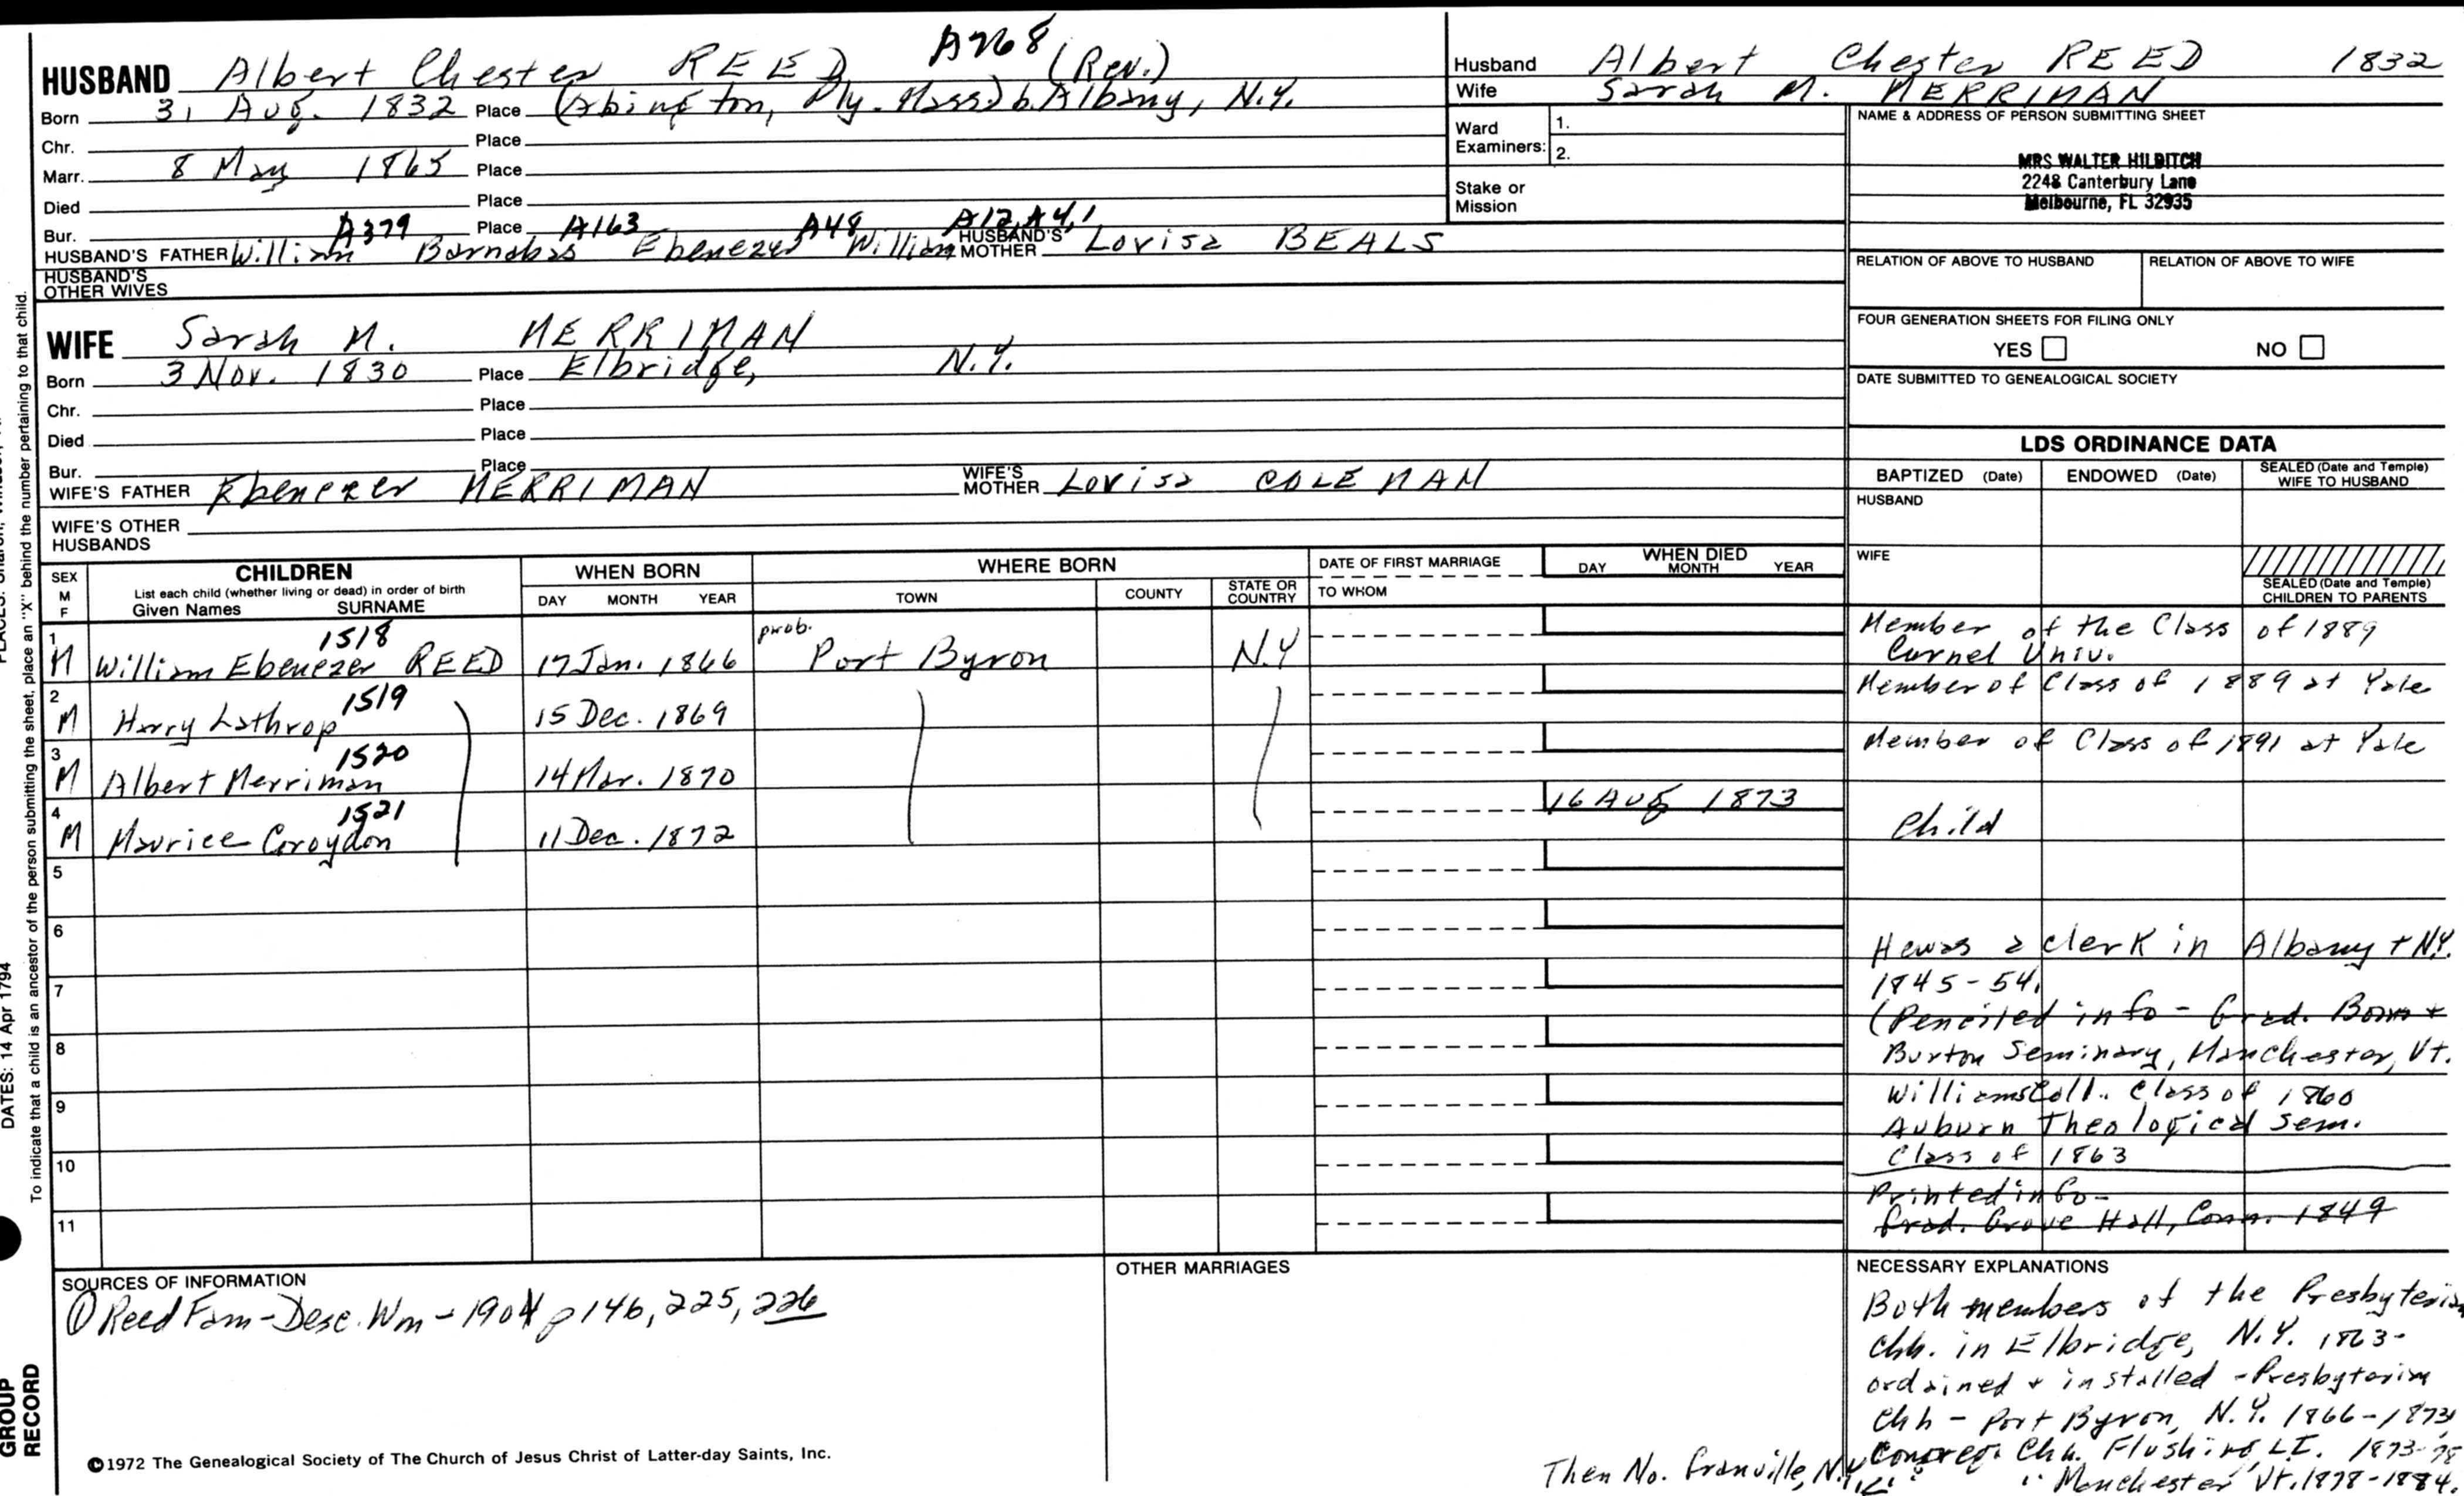 HUSBAND Albert Chester REED A768 (Rev.)
Born 31 Aug. 1832 Place (Abington, Ply. Mass) b. Albany, N.Y.
Chr. Place
Marr. 8 May 1865 Place
Died Place
Bur. A379 Place A163 A48 A12, A4,1
HUSBAND'S FATHER William Barnabas Ebenezer William HUSBAND'S MOTHER Lovisa BEALS
HUSBAND'S OTHER WIVES
WIFE Sarah M. MERRIMAN
Born 3 Nov. 1830 Place Elbridge, N.Y.
Chr. Place
Died Place
Bur. Place
WIFE'S FATHER Ebenezer MERRIMAN WIFE'S MOTHER Lovisa COLEMAN
WIFE'S OTHER HUSBANDS
Husband Albert Chester REED 1832
Wife Sarah M. MERRIMAN
Ward Examiners: 1.
2.
Stake or Mission
NAME & ADDRESS OF PERSON SUBMITTING SHEET
MRS WALTER HILDITCH
2248 Canterbury Lane
Melbourne, FL 32935
RELATION OF ABOVE TO HUSBAND RELATION OF ABOVE TO WIFE
FOUR GENERATION SHEETS FOR FILING ONLY
YES NO
DATE SUBMITTED TO GENEALOGICAL SOCIETY
LDS ORDINANCE DATA
BAPTIZED (Date) ENDOWED (Date) SEALED (Date and Temple) WIFE TO HUSBAND
HUSBAND
WIFE
SEALED (Date and Temple) CHILDREN TO PARENTS
SEX M F CHILDREN
List each child (whether living or dead) in order of birth
Given Names SURNAME
WHEN BORN DAY MONTH YEAR
WHERE BORN TOWN COUNTY STATE OR COUNTRY
DATE OF FIRST MARRIAGE
TO WHOM
WHEN DIED DAY MONTH YEAR
1 M William Ebenezer REED 1518 17 Jan. 1866 prob. Port Byron N.Y
Member of the Class of 1889
Cornel Univ.
2 M Harry Lathrop 1519 15 Dec. 1869
Member of Class of 1889 at Yale
3 M Albert Merriman 1520 14 Mar. 1870
Member of Class of 1891 at Yale
4 M Maurice Croydon 1521 11 Dec. 1872 16 Aug 1873
Child
5
6
7
8
9
10
11
He was a clerk in Albany + N.Y.
1845-54.
(Penciled info - Grad. Born +
Burton Seminary, Manchester, Vt.
Williams Coll. Class of 1860
Auburn Theological Sem.
Class of 1863
Printed info-
Grad. Grove Hall, Conn. 1849
SOURCES OF INFORMATION
① Reed Fam - Desc. Wm - 1904 p 146, 225, 226
OTHER MARRIAGES
NECESSARY EXPLANATIONS
Both members of the Presbyterian
Chh. in Elbridge, N.Y. 1863-
ordained + installed - Presbyterian
Chh - Port Byron, N.Y. 1866-1873,
Congreg. Chh. Flushing, L.I. 1873-78
" Manchester Vt. 1878-1884.
Then No. Granville, N.Y.
©1972 The Genealogical Society of The Church of Jesus Christ of Latter-day Saints, Inc.
To indicate that a child is an ancestor of the person submitting the sheet, place an "X" behind the number pertaining to that child.
DATES: 14 Apr 1794
GROUP
RECORD